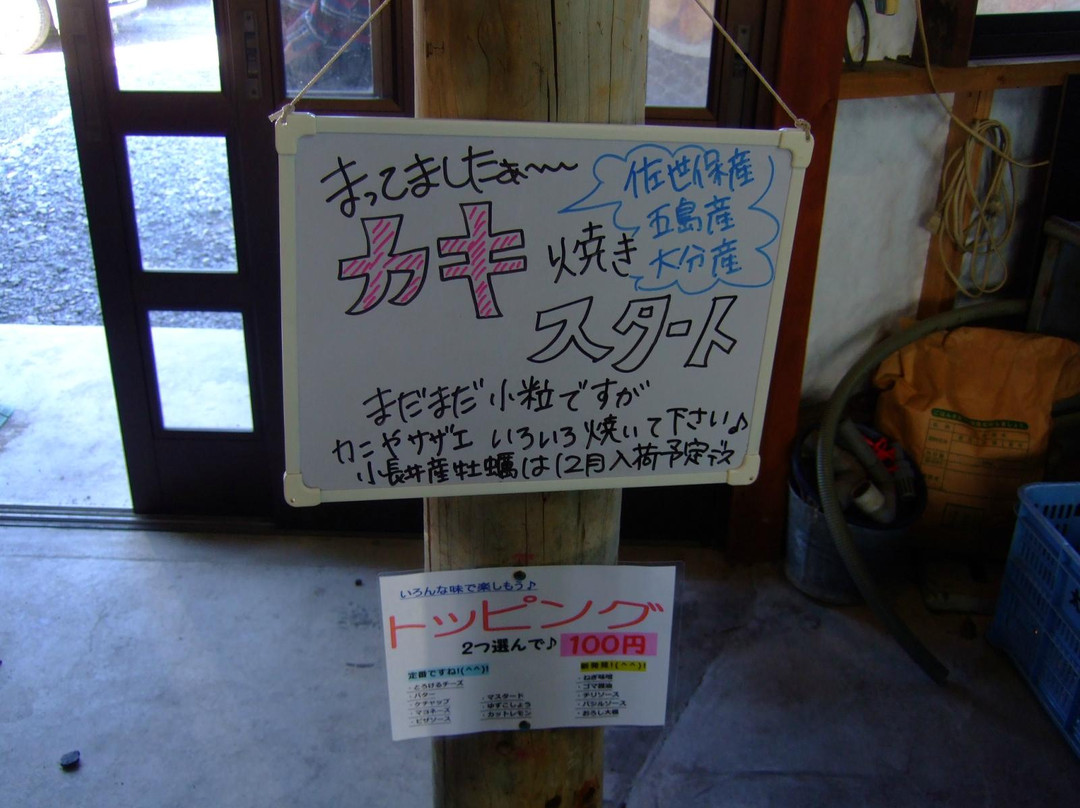 まってましたぁ〜
カキ焼き
佐世保産
五島産
大分産
スタート
まだまだ小粒ですが
カニやサザエ いろいろ焼いて下さい♪
小長井産牡蠣は12月入荷予定デス
いろんな味で楽しもう♪
トッピング
2つ選んで♪ 100円
定番ですね!(^^)!
・とろけるチーズ
・バター
・ケチャップ
・マヨネーズ
・ピザソース
・マスタード
・ゆずこしょう
・カットレモン
新登場!(^^)!
・ねぎ味噌
・ゴマ醤油
・チリソース
・バジルソース
・おろし大根